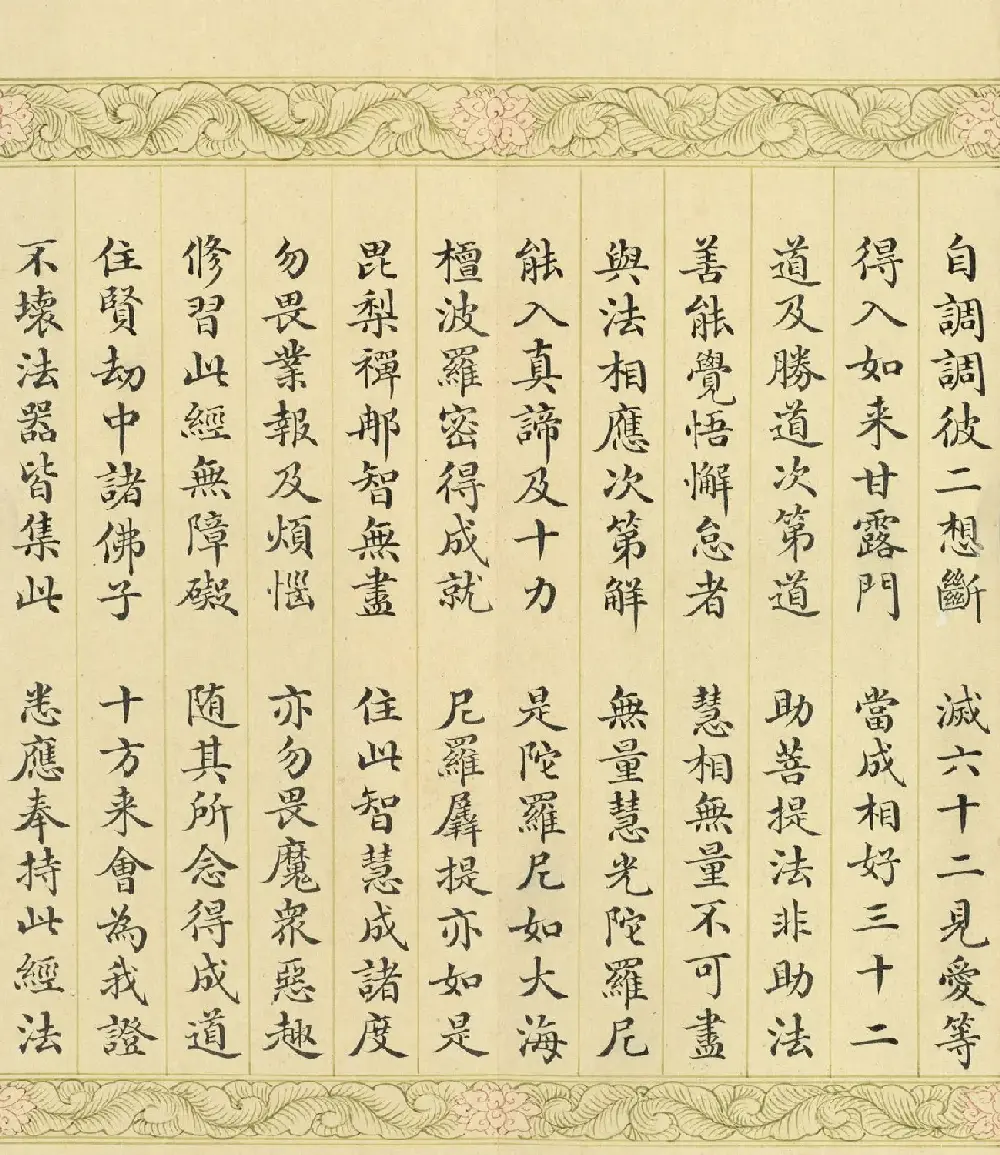 自調調彼二想斷　滅六十二見愛等
得入如来甘露門　當成相好三十二
道及勝道次第道　助菩提法非助法
善能覺悟懈怠者　慧相無量不可盡
與法相應次第解　無量慧光陀羅尼
能入真諦及十力　是陀羅尼如大海
檀波羅密得成就　尼羅羼提亦如是
毘梨禪那智無盡　住此智慧成諸度
勿畏業報及煩惱　亦勿畏魔衆惡趣
修習此經無障礙　随其所念得成道
住賢劫中諸佛子　十方来會為我證
不壞法器皆集此　悉應奉持此經法